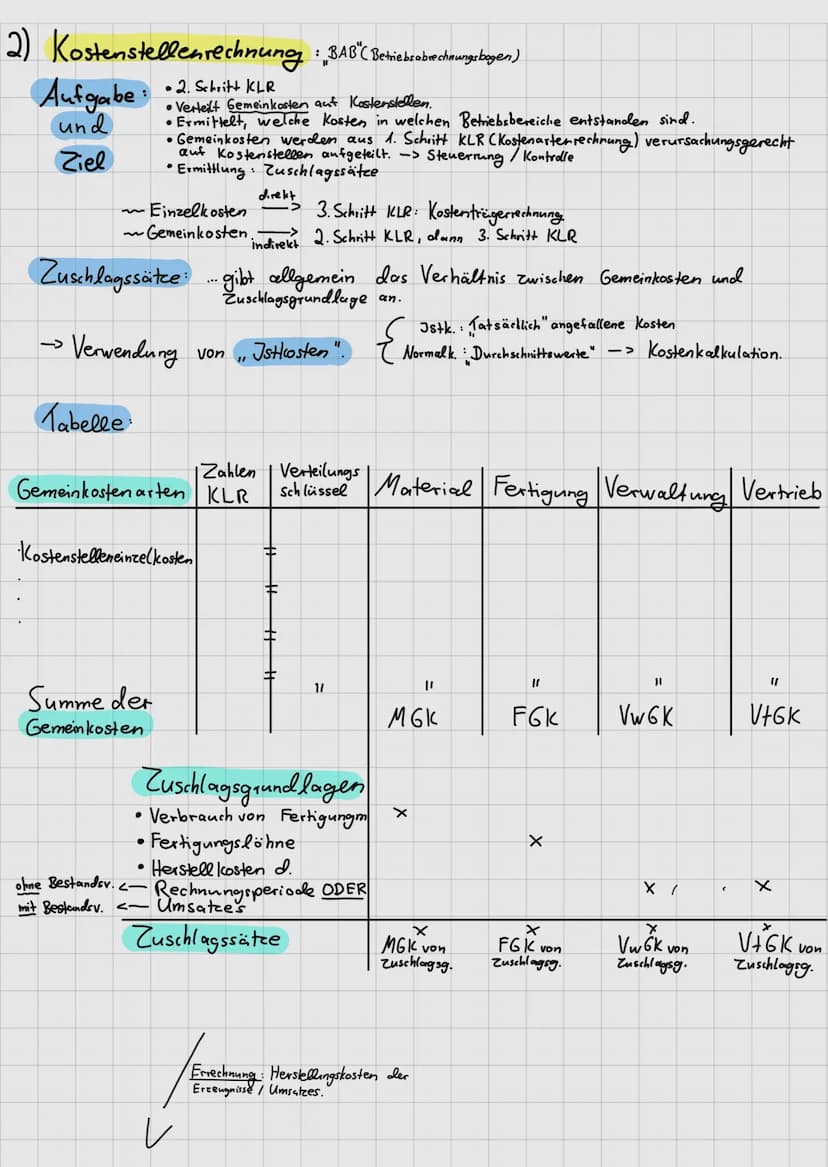 2) Kostenstellenrechnung : „BAB" (Betriebsabrechnungsbogen)
Aufgabe: und Ziel
• 2. Schritt KLR
• Verteilt Gemeinkosten auf Kostenstellen.
• Ermittelt, welche Kosten in welchen Betriebsbereiche entstanden sind.
• Gemeinkosten werden aus 1. Schritt KLR (Kostenartenrechnung) verursachungsgerecht
auf Kostenstellen aufgeteilt. -> Steuerrung / Kontrolle
• Ermittlung: Zuschlagssätze
~ Einzelkosten direkt -> 3. Schritt KLR: Kostenträgerrechnung
~ Gemeinkosten indirekt -> 2. Schritt KLR, dann 3. Schritt KLR
Zuschlagssätze: ... gibt allgemein das Verhältnis zwischen Gemeinkosten und
Zuschlagsgrundlage an.
-> Verwendung von „Istkosten".
{ Istk.: „Tatsächlich" angefallene Kosten
Normalk.: „Durchschnittswerte" -> Kostenkalkulation.
Tabelle:
Gemeinkostenarten | Zahlen KLR | Verteilungsschlüssel | Material | Fertigung | Verwaltung | Vertrieb
Kostenstelleneinzelkosten
.
.
.
" " " " "
Summe der Gemeinkosten MGK FGK VwGK VtGK
Zuschlagsgrundlagen
• Verbrauch von Fertigungm x
• Fertigungslöhne x
• Herstellkosten d.
ohne Bestandsv. <- Rechnungsperiode ODER x x
mit Bestandsv. <- Umsatzes
Zuschlagssätze x x x x
MGK von Zuschlagsg. FGK von Zuschlagsg. VwGK von Zuschlagsg. VtGK von Zuschlagsg.
Errechnung: Herstellungskosten der
Erzeugnisse / Umsatzes.